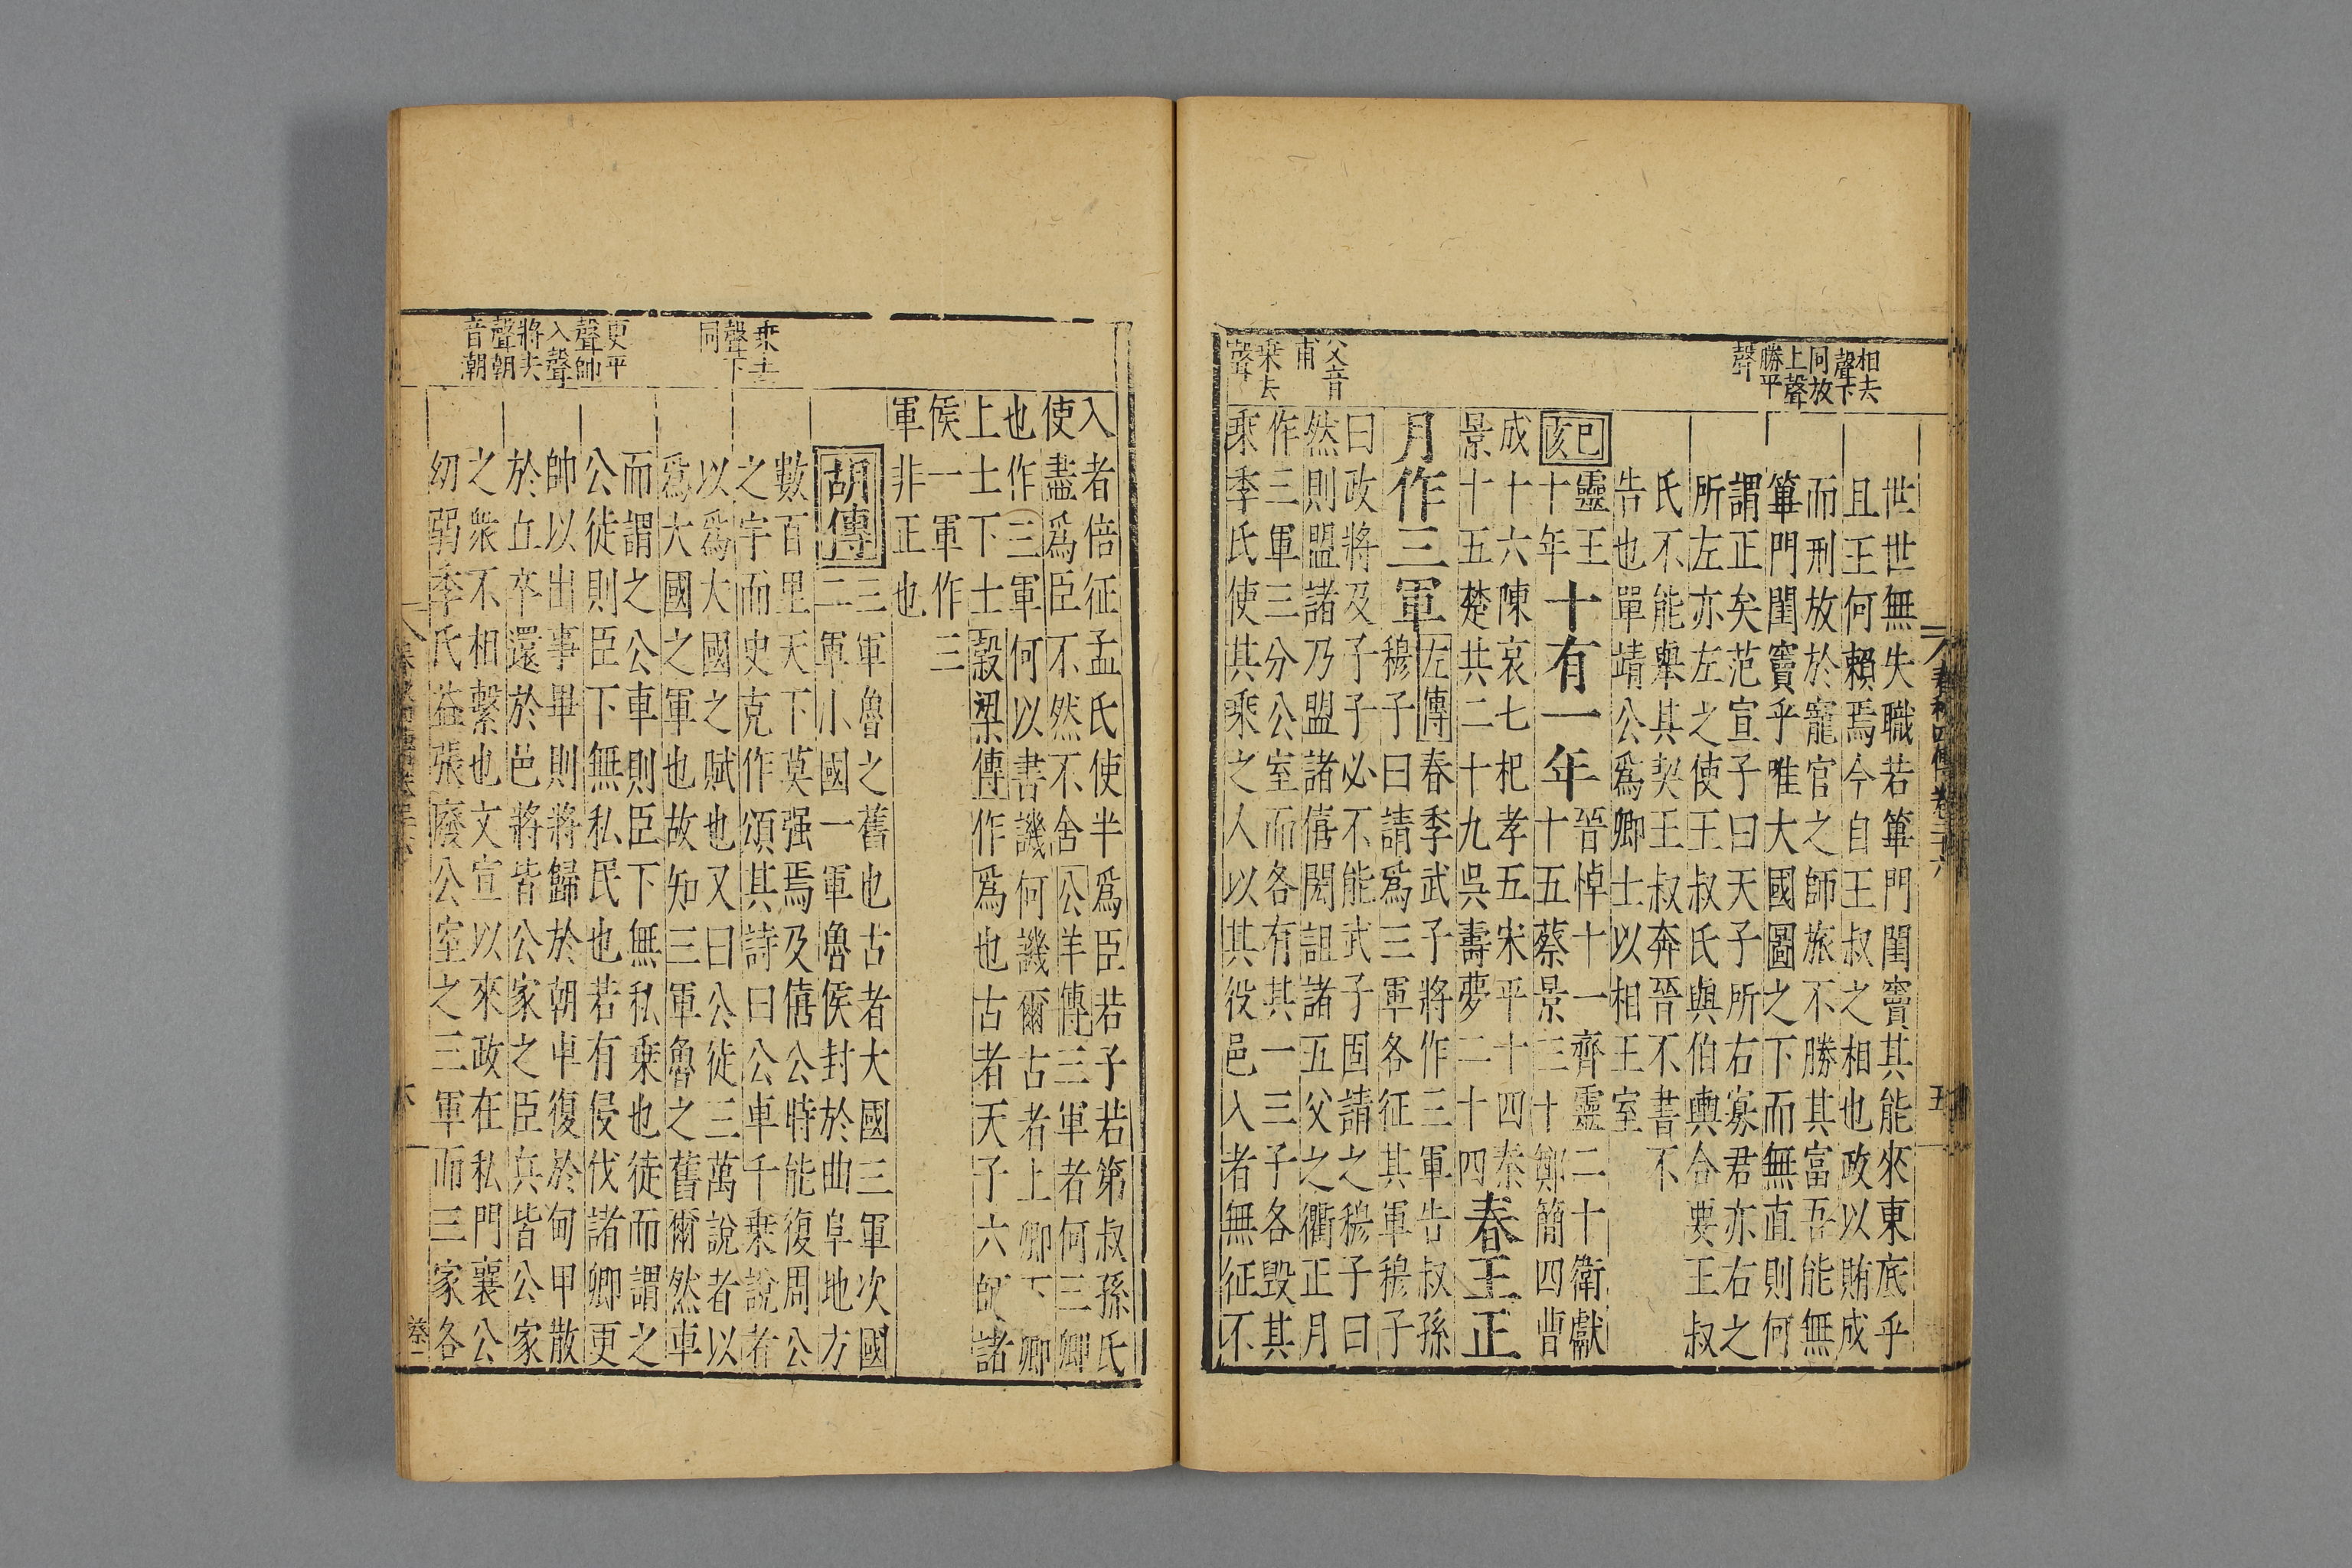 相去
聲下
同放
上聲
勝平
聲
世世無失職若篳門閨竇其能來東底乎
且王何賴焉今自王叔之相也政以賄成
而刑放於寵官之師旅不勝其富吾能無
篳門閨竇乎唯大國圖之下而無直則何
謂正矣范宣子曰天子所右寡君亦右之
所左亦左之使王叔氏與伯輿合要王叔
氏不能舉其契王叔奔晉不書不
告也單靖公爲卿士以相王室
己亥
靈王
十年
十有一年
晉悼十一齊靈二十衛獻
十五蔡景三十鄭簡四曹
成十六陳哀七杞孝五宋平十四秦
景十五楚共二十九吳壽夢二十四
春王正
月作三軍
左傳春季武子將作三軍告叔孫
穆子曰請爲三軍各征其軍穆子
曰政將及子子必不能武子固請之穆子曰
然則盟諸乃盟諸僖閎詛諸五父之衢正月
作三軍三分公室而各有其一三子各毀其
乘季氏使其乘之人以其役邑入者無征不
父音
甫
乘去
聲
春秋四傳卷二十六
五
入者倍征孟氏使半爲臣若子若第叔孫氏
使盡爲臣不然不舍公羊傳三軍者何三卿
也作三軍何以書譏何譏爾古者上卿下卿
上士下士穀梁傳作爲也古者天子六師諸
侯一軍作三
軍非正也
胡傳
三軍魯之舊也古者大國三軍次國
二軍小國一軍魯侯封於曲阜地方
數百里天下莫强焉及僖公時能復周公
之宇而史克作頌其詩曰公車千乘說者
以爲大國之賦也又曰公徒三萬說者以
爲大國之軍也故知三軍魯之舊爾然車
而謂之公車則臣下無私乘也徒而謂之
公徒則臣下無私民也若有侵伐諸卿更
帥以出事畢則將歸於朝車復於甸甲散
於丘卒還於邑將皆公家之臣兵皆公家
之衆不相繫也文宣以來政在私門襄公
幼弱季氏益張廢公室之三軍而三家各
乘去
聲下
同
更平
聲帥
入聲
將去
聲朝
音潮